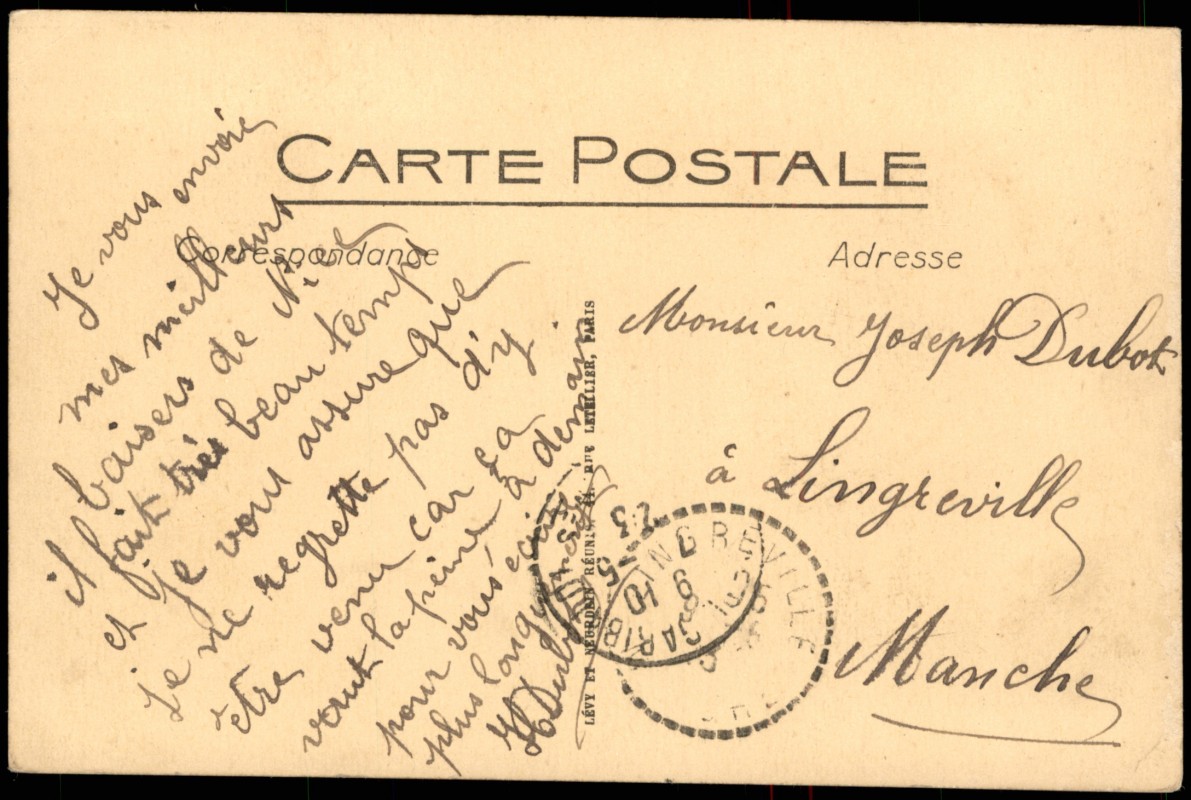 CARTE POSTALE
Correspondance
Adresse
Je vous envoie
mes meilleurs
baisers de Nice
il fait très beau temps
et je vous assure que
je ne regrette pas d'y
être venu car ça
vaut la peine à demain
pour vous écrire
plus longuement
HDubot
LÉVY ET NEURDEIN RÉUNIS, 44, RUE LETELLIER, PARIS
Monsieur Joseph Dubot
à Lingreville
Manche
LINGREVILLE
GARIB
23
5
10